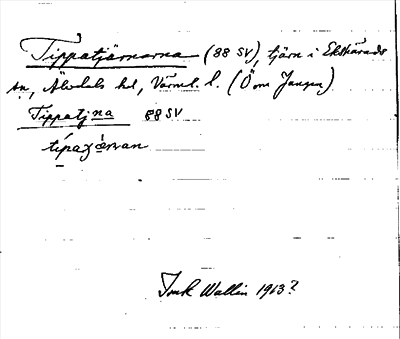 Tippatjärnarna (88 SV), tjärn i Ekshärads
sn, Älvdals hd, Värml. l. (Ö om Jangen)
Tippatjna 88 SV
Wallin 1913?